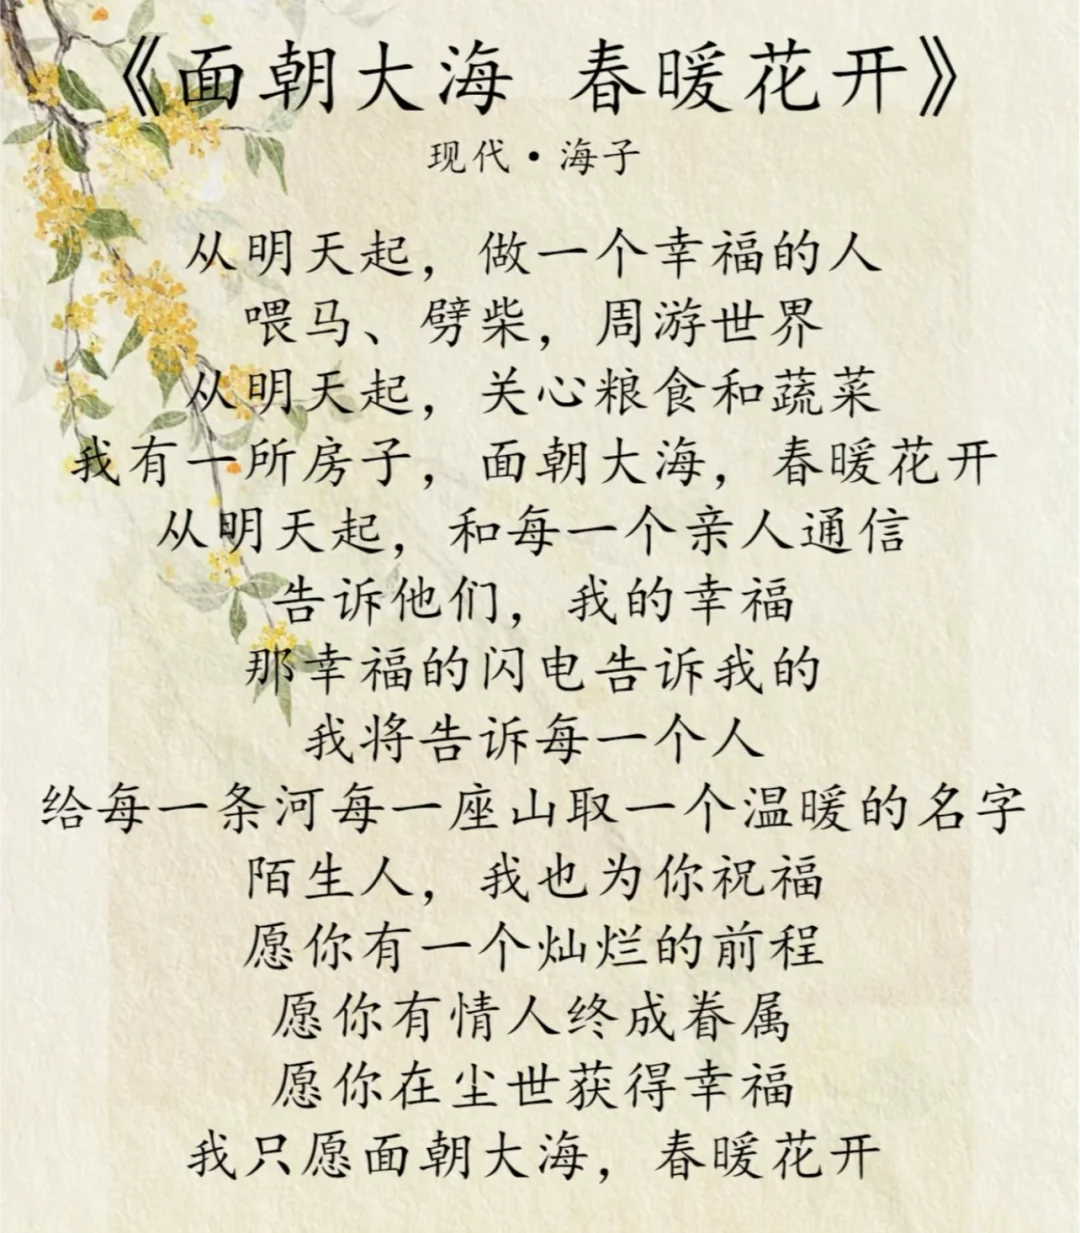 《面朝大海 春暖花开》
现代·海子
从明天起，做一个幸福的人
喂马、劈柴，周游世界
从明天起，关心粮食和蔬菜
我有一所房子，面朝大海，春暖花开
从明天起，和每一个亲人通信
告诉他们，我的幸福
那幸福的闪电告诉我的
我将告诉每一个人
给每一条河每一座山取一个温暖的名字
陌生人，我也为你祝福
愿你有一个灿烂的前程
愿你有情人终成眷属
愿你在尘世获得幸福
我只愿面朝大海，春暖花开